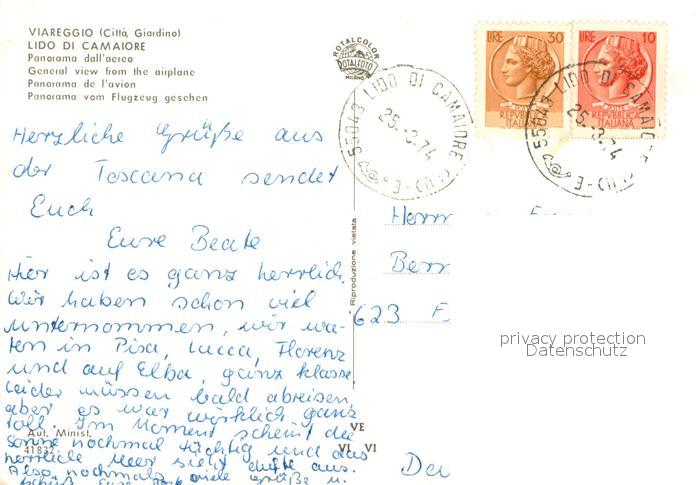 VIAREGGIO (Città, Giardino)
LIDO DI CAMAIORE
Panorama dall'aereo
General view from the airplane
Panorama de l'avion
Panorama vom Flugzeug gesehen
ROTALCOLOR
ROTALFOTO
MILANO
LIRE 30
POSTE
REPVBBLICA
ITALIANA
LIRE 10
POSTE
REPVBBLICA
ITALIANA
55043 LIDO DI CAMAIORE (LU)
74
55043 LIDO DI CAMAIORE (LU)
74
Herzliche Grüße aus
der Toscana sendet
Euch
Eure Beate
Hier ist es ganz herrlich.
Wir haben schon viel
unternommen, wir wa-
ren in Pisa, Lucca, Florenz
und auf Elba, ganz klasse
Leider müssen bald abreisen,
aber es war wirklich ganz
toll. Im Moment scheint die
Sonne nochmal tüchtig und das
herrliche Meer sieht dufte aus.
Also nochmals viele Grüße u.
Aut. Minist.
41832
VE
VI VI
Riproduzione vietata
Herrn
Berr
623 F
privacy protection
Datenschutz